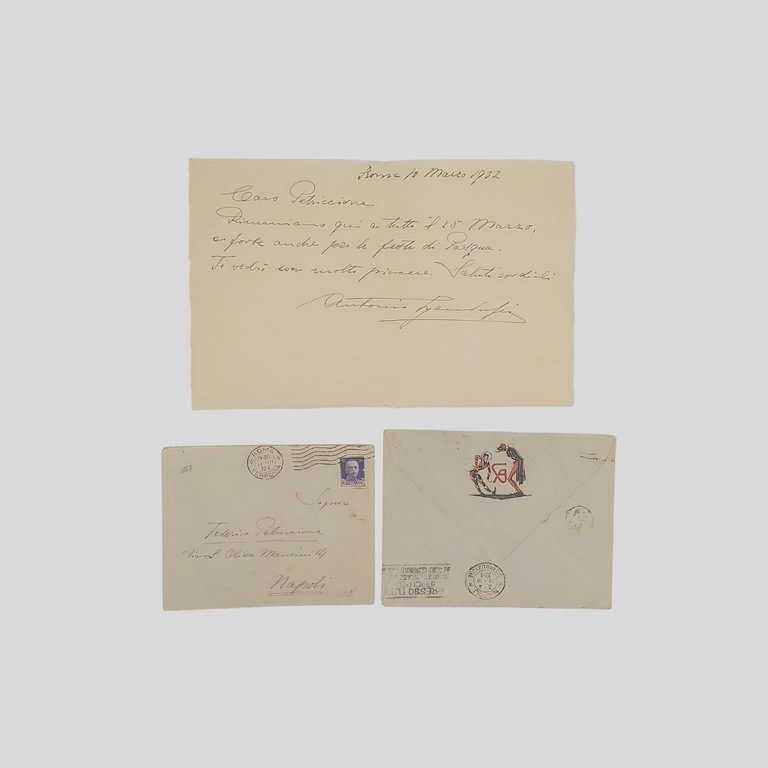 Roma 10 Marzo 1932
Caro Petriccione
Rimaniamo qui a tutto il 25 Marzo,
e forse anche per le feste di Pasqua.
Ti vedrò con molto piacere. Saluti cordiali
Antonio Gandusio
167
ROMA
FERROVIA
Signor
Federico Petriccione
Via S. Oliva Mancini 19
Napoli
NAPOLI